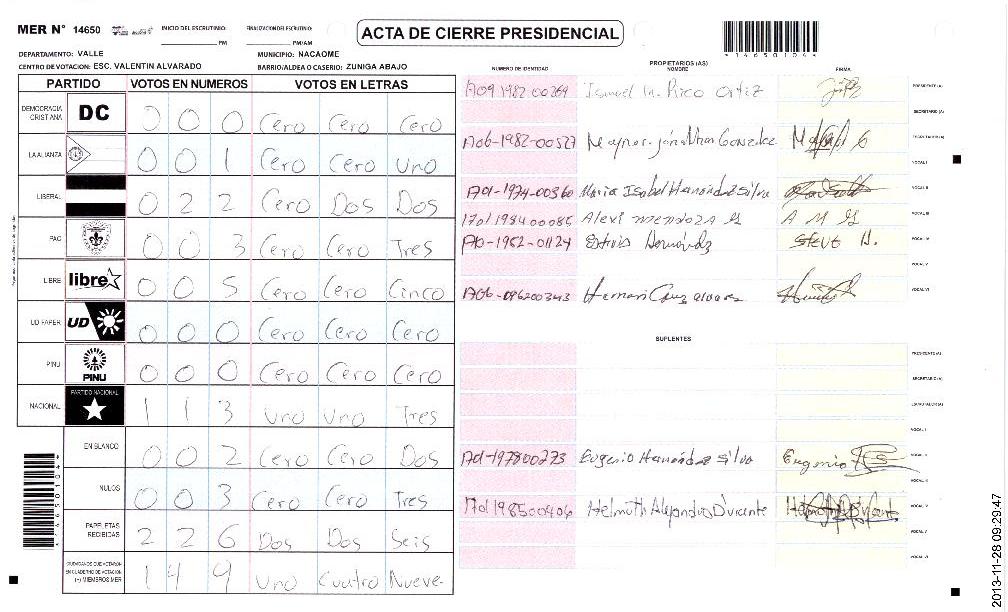 MER N° 14650 INICIO DEL ESCRUTINIO: PM FINALIZACION DEL ESCRUTINIO: PM/AM
ACTA DE CIERRE PRESIDENCIAL
*14650104*
DEPARTAMENTO: VALLE MUNICIPIO: NACAOME
CENTRO DE VOTACION: ESC. VALENTIN ALVARADO BARRIO/ALDEA O CASERIO: ZUNIGA ABAJO
PARTIDO VOTOS EN NUMEROS VOTOS EN LETRAS
DEMOCRACIA CRISTIANA DC 0 0 0 Cero Cero Cero
LA ALIANZA 0 0 1 Cero Cero Uno
LIBERAL 0 2 2 Cero Dos Dos
PAC 0 0 3 Cero Cero Tres
LIBRE libre 0 0 5 Cero Cero Cinco
UD FAPER UD 0 0 0 Cero Cero Cero
PINU PINU 0 0 0 Cero Cero Cero
NACIONAL PARTIDO NACIONAL 1 1 3 Uno Uno Tres
EN BLANCO 0 0 2 Cero Cero Dos
NULOS 0 0 3 Cero Cero Tres
PAPELETAS RECIBIDAS 2 2 6 Dos Dos Seis
CIUDADANOS QUE VOTARON EN CUADERNO DE VOTACION (+) MIEMBROS MER 1 4 9 Uno Cuatro Nueve
*14650104*
PROPIETARIOS (AS)
NUMERO DE IDENTIDAD NOMBRE FIRMA
1709 1982 00269 Ismael Ortiz PRESIDENTE (A)
SECRETARIO (A)
1706-1982-00527 Jonathan Gonzalez ESCRUTADOR (A)
VOCAL I
1701-1974-00360 Maria Isabel Hernandez Silva VOCAL II
1701 1984 00085 Alexi Mendoza M A M M VOCAL III
Hernández Steve H. VOCAL IV
VOCAL V
Cruz alvarez VOCAL VI
SUPLENTES
PRESIDENTE (A)
SECRETARIO (A)
ESCRUTADOR (A)
VOCAL I
1701-197800273 Eugenio Hernandez Silva Eugenio VOCAL II
VOCAL III
1701198500406 Helmuth Alejandro VOCAL IV
VOCAL V
VOCAL VI
2013-11-28 09:29:47